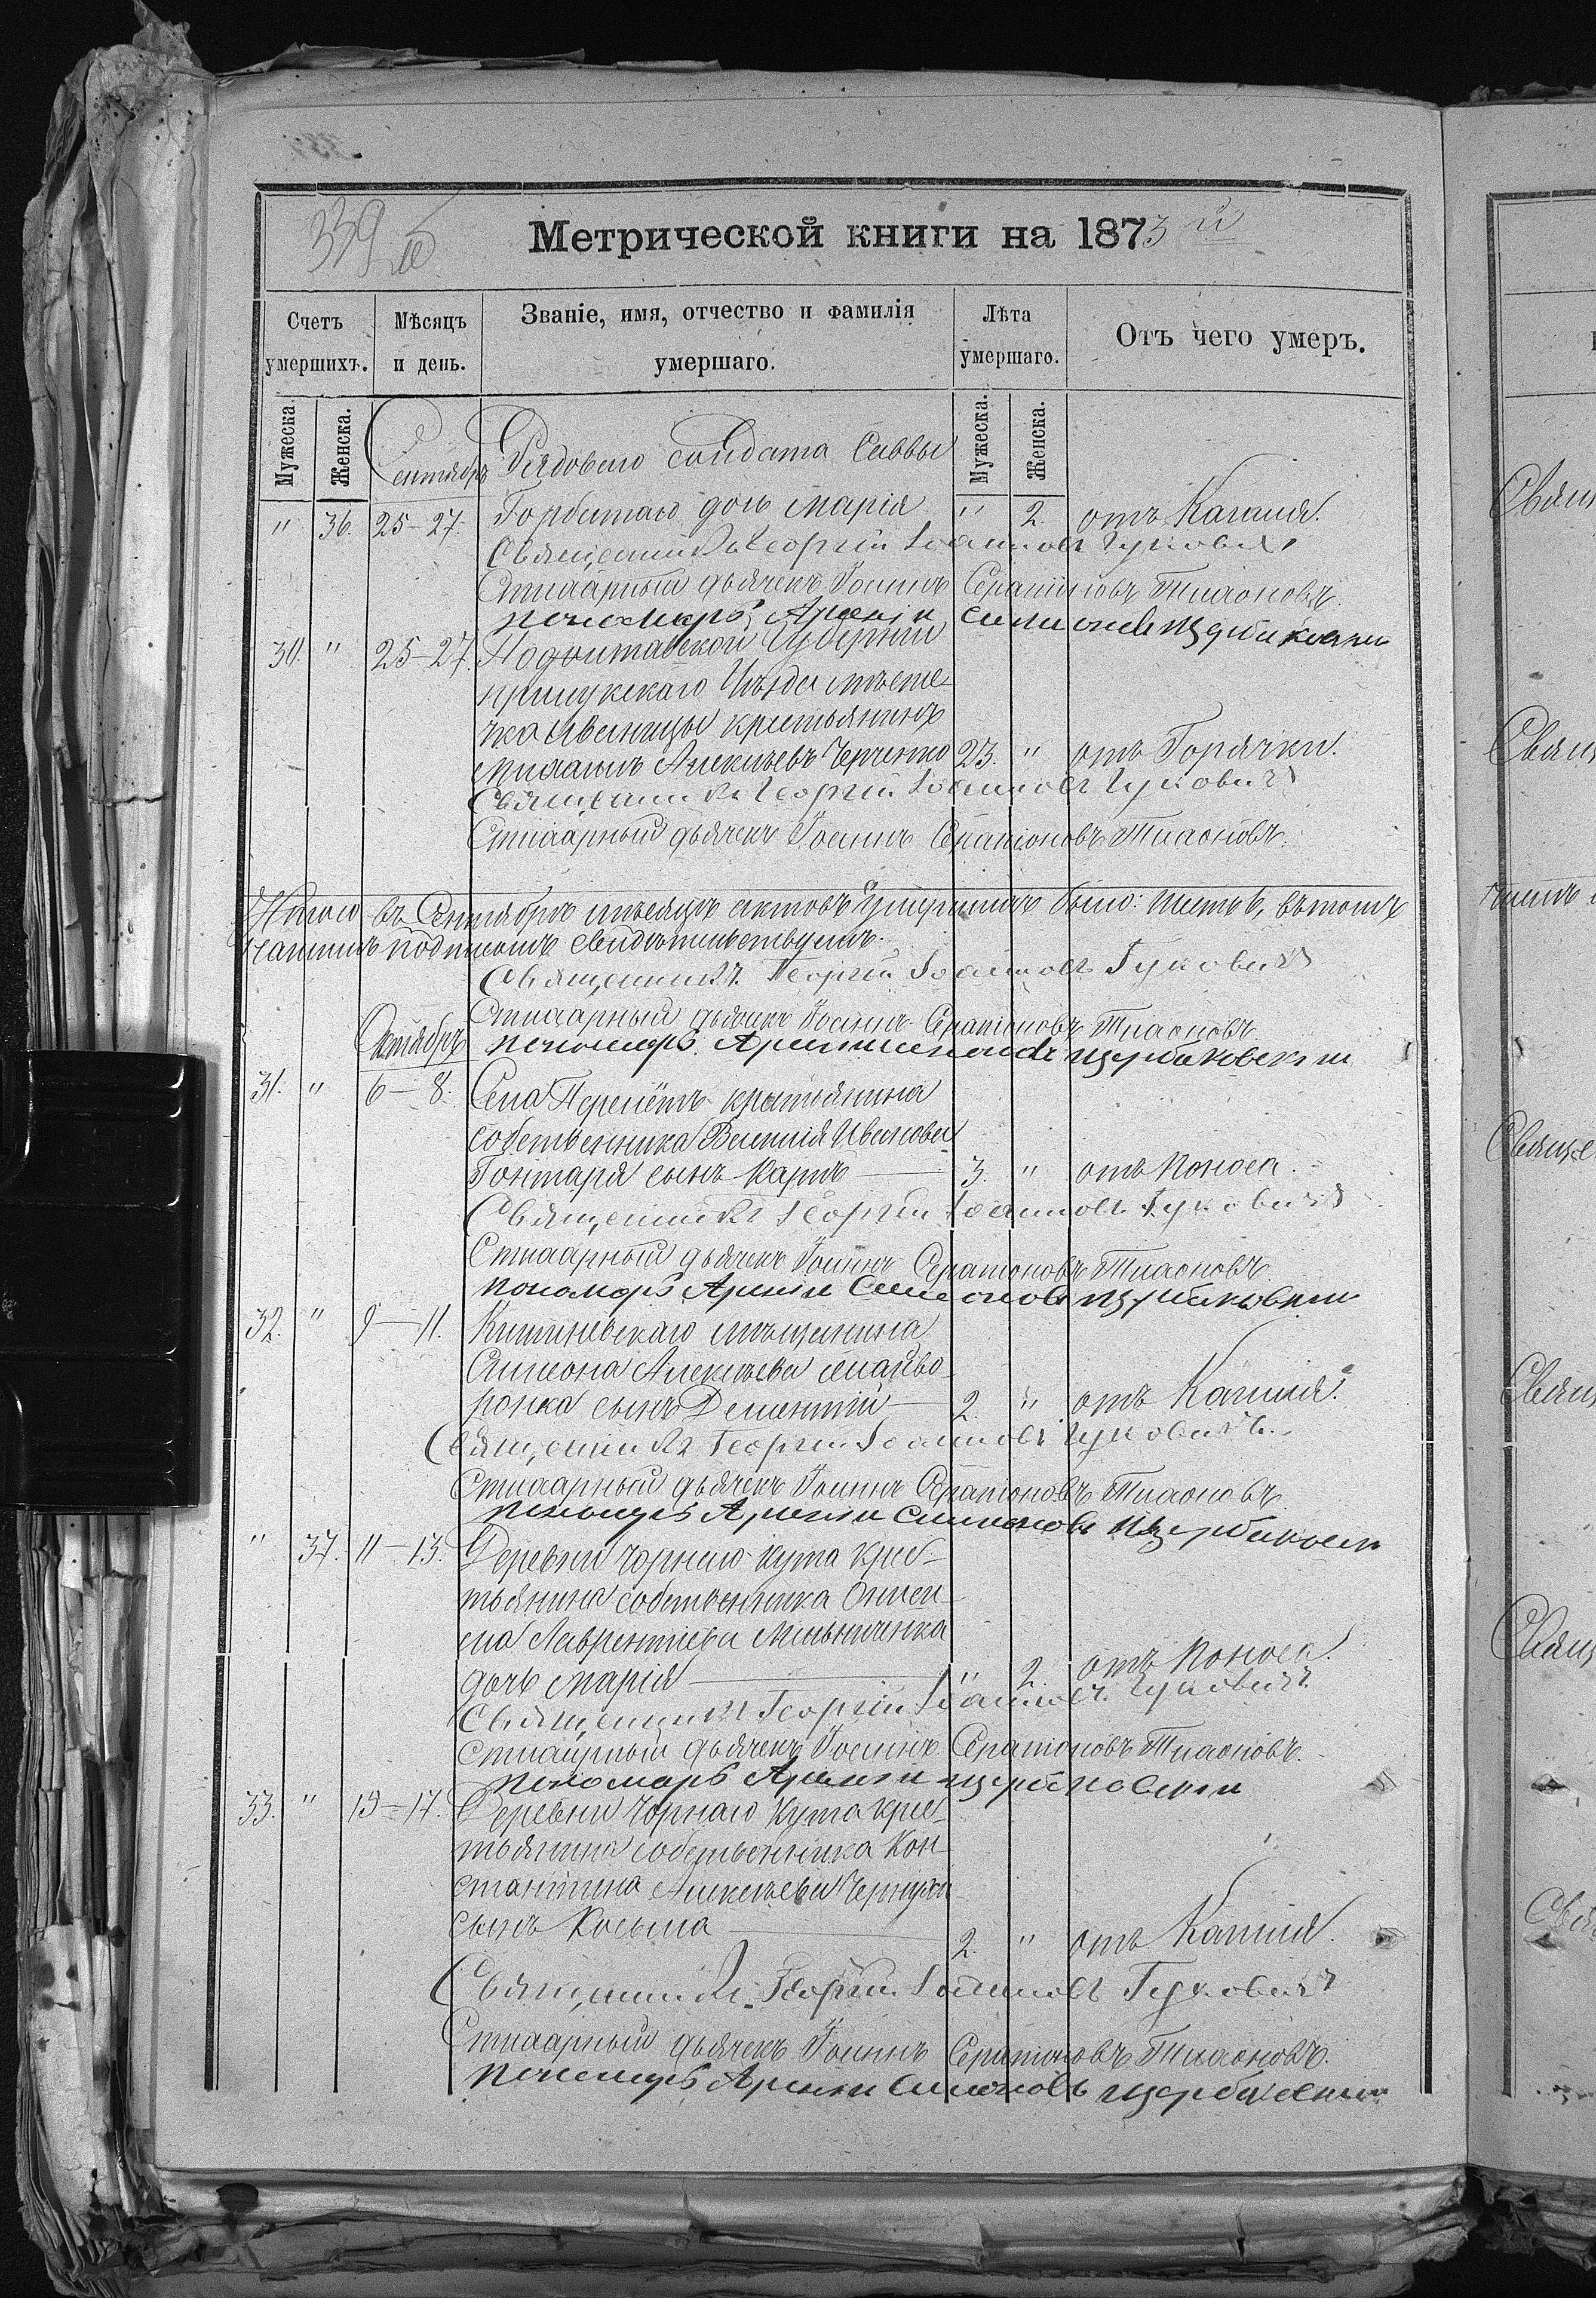 339 об
Метрической книги на 1873 й
Счетъ умершихъ.
Мѣсяцъ и день.
Званіе, имя, отчество и фамилія умершаго.
Лѣта умершаго.
Отъ чего умеръ.
Мужеска. Женска.
Мужеска. Женска.
Сентябрь Рядового солдата Саввы
" 36. 25-27. Горбатаго дочь Марія " 2. отъ Кашля.
Священникъ Георгій Іоанновъ Гуковичъ
Стихарный дьячекъ Іоаннъ Серапіоновъ Тихоновъ.
пономарь Арсеній Симеоновъ Щербаковскій
30. " 25-27. Полтавской Губерніи
прилукскаго Уѣзда мѣсте-
чка Иваницы крестьянинъ
Михаилъ Алексѣевъ 23. " отъ Горячки.
Священникъ Георгій Іоанновъ Гуковичъ
Стихарный дьячекъ Іоаннъ Серапіоновъ Тихоновъ.
Итого въ Сентябрѣ мѣсяцѣ актовъ Умершихъ было: шесть, въ томъ
нашимъ подписомъ свидѣтельствуемъ.
Священникъ Георгій Іоанновъ Гуковичъ
Стихарный дьячекъ Іоаннъ Серапіоновъ Тихоновъ
Октябрь пономарь Арсеній Симеоновъ Щербаковскій
31. " 6-8. Села Перелётъ крестьянина
собственника Василія Иванова
Гонтаря сынъ Карпъ 3. " отъ Поноса.
Священникъ Георгій Іоанновъ Гуковичъ
Стихарный дьячекъ Іоаннъ Серапіоновъ Тихоновъ.
пономарь Арсеній Симеоновъ Щербаковскій
32. " 9-11. Кишиневскаго мѣщанина
Симеона Алексѣева
сынъ Дементій 2. " отъ Кашля.
Священникъ Георгій Іоанновъ Гуковичъ.
Стихарный дьячекъ Іоаннъ Серапіоновъ Тихоновъ.
пономарь Арсеній Симеоновъ Щербаковскій
" 37. 11-13. Деревни Чорнаго Кута крес-
тьянина собственника Ониси-
ма Лаврентіева Мельниченка
дочь Марія " 2. отъ Поноса.
Священникъ Георгій Іоанновъ Гуковичъ
Стихарный дьячекъ Іоаннъ Серапіоновъ Тихоновъ.
пономарь Арсеній Щербаковскій
33. " 15-17. Деревни Чорнаго Кута крес-
тьянина собственника Кон-
стантина Алексѣева
сынъ Косьма 2. " отъ Кашля.
Священникъ Георгій Іоанновъ Гуковичъ
Стихарный дьячекъ Іоаннъ Серапіоновъ Тихоновъ.
пономарь Арсеній Симеоновъ Щербаковскій